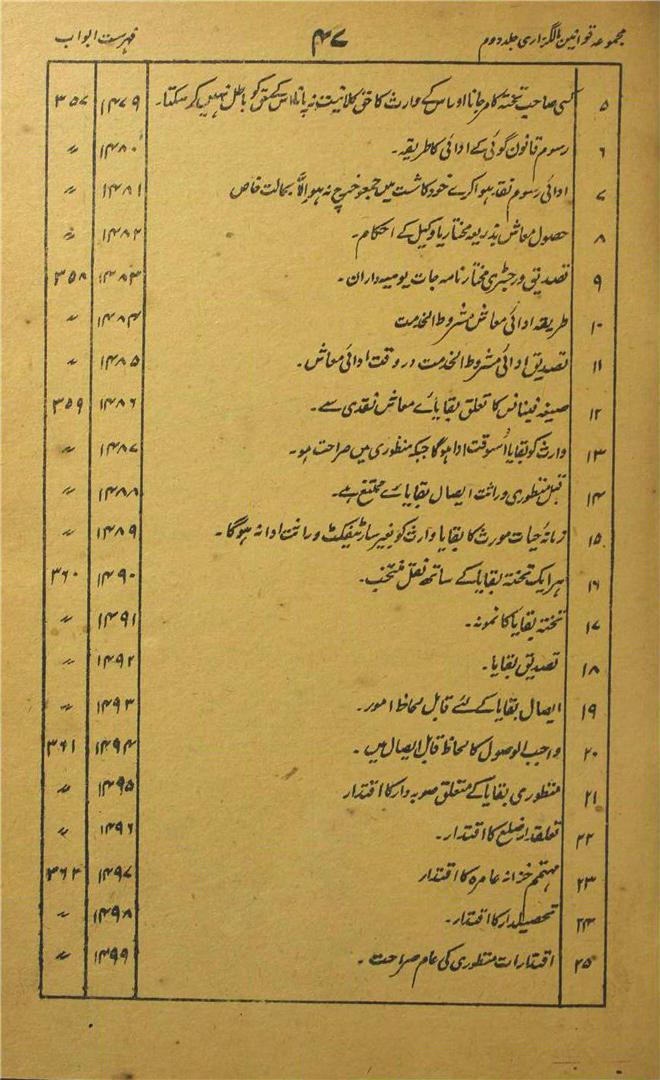 مجموعہ قوانین مالگزاری جلد دوم ۴۷ فہرست ابواب
۵ کسی صاحب تختہ کا مرجانا اور اس کے وارث کا حق کلانیت نہ پانا اس کے حق کو باطل نہیں کر سکتا۔ ۱۴۷۹ ۳۵۷
۶ رسوم قانون گوئی کے ادائی کا طریقہ۔ ۱۴۸۰ 〃
۷ ادائی رسوم نقد ہوا کرے خود کاشت میں جمع و خرچ نہ ہو الّا بحالت خاص ۱۴۸۱ 〃
۸ حصول معاش بذریعہ مختار یا وکیل کے احکام۔ ۱۴۸۲ 〃
۹ تصدیق و رجسٹری مختار نامہ جات یومیہ داران۔ ۱۴۸۳ ۳۵۸
۱۰ طریقہ ادائی معاش مشروط الخدمت ۱۴۸۴ 〃
۱۱ تصدیق ادائی مشروط الخدمت در وقت ادائی معاش۔ ۱۴۸۵ 〃
۱۲ صیغہ فینانس کا تعلق بقایائے معاش نقدی سے۔ ۱۴۸۶ ۳۵۹
۱۳ وارث کو بقایا اُسوقت ادا ہوگا جبکہ منظوری میں صراحت ہو۔ ۱۴۸۷ 〃
۱۴ قبل منظوری وراثت ایصال بقایائے ممتنع ہے۔ ۱۴۸۸ 〃
۱۵ زمانۂ حیات مورث کا بقایا وارث کو بغیر سارٹیفکٹ وراثت ادا نہ ہوگا۔ ۱۴۸۹ 〃
۱۶ ہر ایک تختہ بقایا کے ساتھ نقل منتخب۔ ۱۴۹۰ ۳۶۰
۱۷ تختہ بقایا کا نمونہ۔ ۱۴۹۱ 〃
۱۸ تصدیق بقایا۔ ۱۴۹۲ 〃
۱۹ ایصال بقایا کے لئے قابل لحاظ امور۔ ۱۴۹۳ 〃
۲۰ واجب الوصول کا لحاظ قابل ایصال میں۔ ۱۴۹۴ ۳۶۱
۲۱ منظوری بقایا کے متعلق صوبہ دار کا اقتدار ۱۴۹۵ 〃
۲۲ تعلقدار ضلع کا اقتدار۔ ۱۴۹۶ 〃
۲۳ مہتمم خزانہ عامرہ کا اقتدار ۱۴۹۷ ۳۶۲
۲۴ تحصیلدار کا اقتدار۔ ۱۴۹۸ 〃
۲۵ اقتدارات منظوری کی عام صراحت۔ ۱۴۹۹ 〃